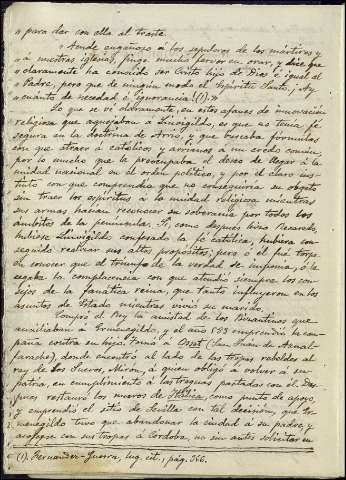 " para dar con ella al traste.
" Acude engañoso a los sepulcros de los mártires y
" á nuestras iglesias, finge mucho fervor en orar, y dice que
" claramente ha conocido ser Cristo hijo de Dios é igual al
" Padre, pero que de ningún modo el Espíritu Santo, ¡Ay
" cuánto de necedad é ignorancia! (1). "
Lo que se ve claramente, en estos afanes de innovación
religiosa que aquejaban á Leovigildo, es que no tenía fé
segura en la doctrina de Arrio, y que buscaba fórmulas
con que atraer á católicos y arrianos á un credo común,
por lo mucho que le preocupaba el deseo de llegar á la
unidad nacional en el orden político, y por el claro ins-
tinto con que comprendía que no conseguiría su objeto
sin traer los espíritus á la unidad religiosa mientras
sus armas hacían reconocer su soberanía por todos los
ámbitos de la península. Si, como después hizo Recaredo,
hubiese Leovigildo confesado la fé católica, hubiera con-
seguido realizar sus altos propósitos; pero ó él fué torpe
en conocer que el triunfo de la verdad se imponía, ó le
cegaba la complacencia con que atendió siempre los con-
sejos de la fanática reina, que tanto influyeron en los
asuntos de Estado mientras vivió su marido.
Compró el Rey la amistad de los Bizantinos que
auxiliaban á Ermenegildo, y el año 583 emprendió la cam-
paña contra su hijo. Tomó á Osset (San Juan de Aznal-
farache), donde encontró al lado de las tropas rebeldes al
rey de los Suevos, Mirón, á quien obligó á volver á su
patria, en cumplimiento á las treguas pactadas con él. Des-
pués restauró los muros de Itálica, como punto de apoyo,
y emprendió el sitio de Sevilla con tal decisión, que Er-
menegildo tuvo que abandonar la ciudad á su padre, y
acogerse con sus tropas á Córdoba, no sin antes solicitar en
(1). Fernandez-Guerra, lug. cit., pág. 366.